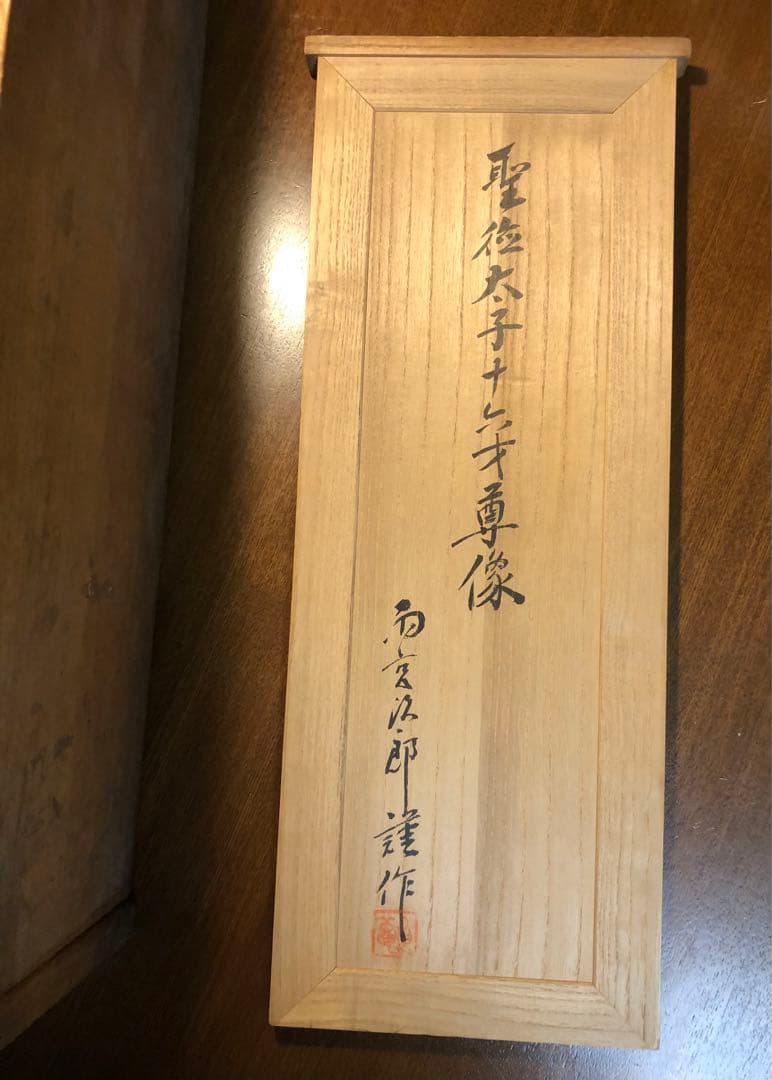 聖徳太子十六才尊像
雨宮治郎謹作